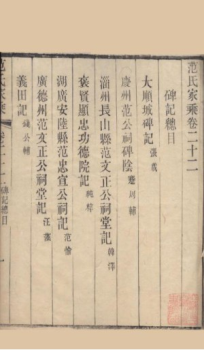 范氏家乘卷二十二
碑記總目
大順城碑記 張載
慶州范公祠碑陰
淄州長山縣范文正公祠堂記 韓澤
褒賢顯忠功德院記
湖廣安陸縣范忠宣公祠記 范惟
廣德州范文正公祠堂記 汪藻
義田記 錢公輔